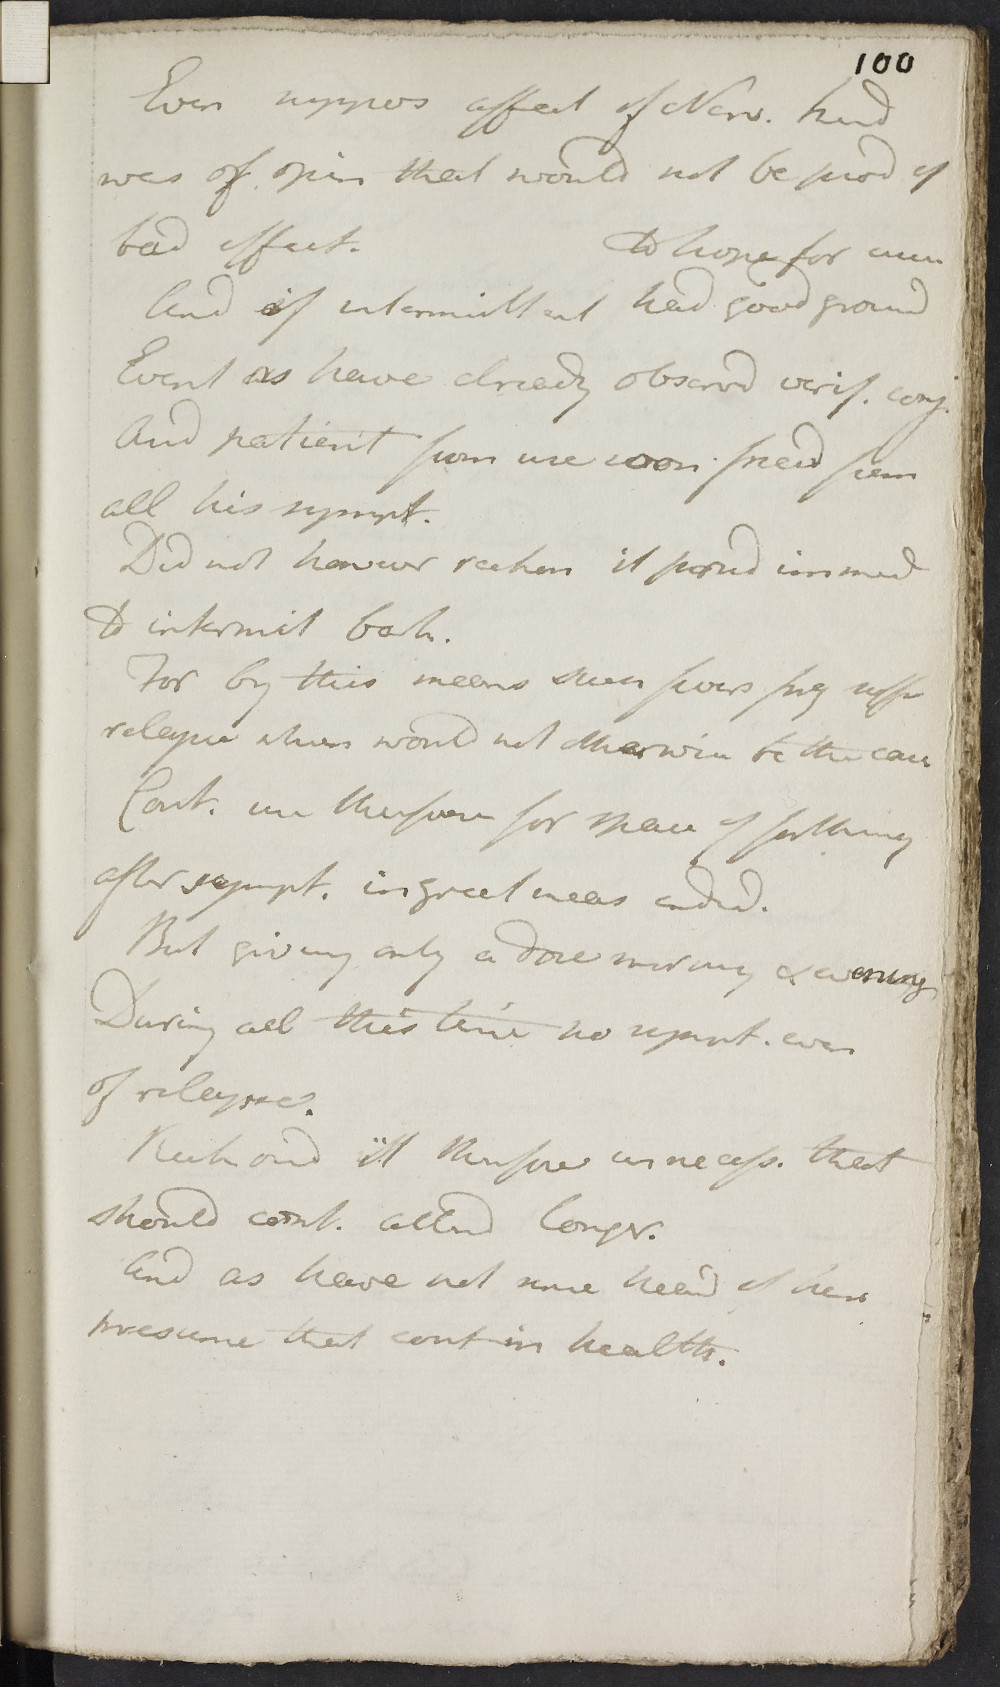 100
Even suppos affect of Nerv. kind
was of opin that would not be prod of
bad effect. to hope for cure
And if intermittent had good ground
Event as have already observd verif. conj.
And patient from use soon freed from
all his sympt.
Did not however reckon it prud immed
to intermit bark.
For by this means shun fevers freq suffer
relapse when would not otherwise be the case
Cont. use therfore for space of forthnig
after sympt. in great meas ended.
But giving only a dose morning & evening
During all this time no sympt. even
of relapse.
Reckond it therfore unnecess. that
should cont. attend longer.
And as have not since heard of him
presume that cont in health.